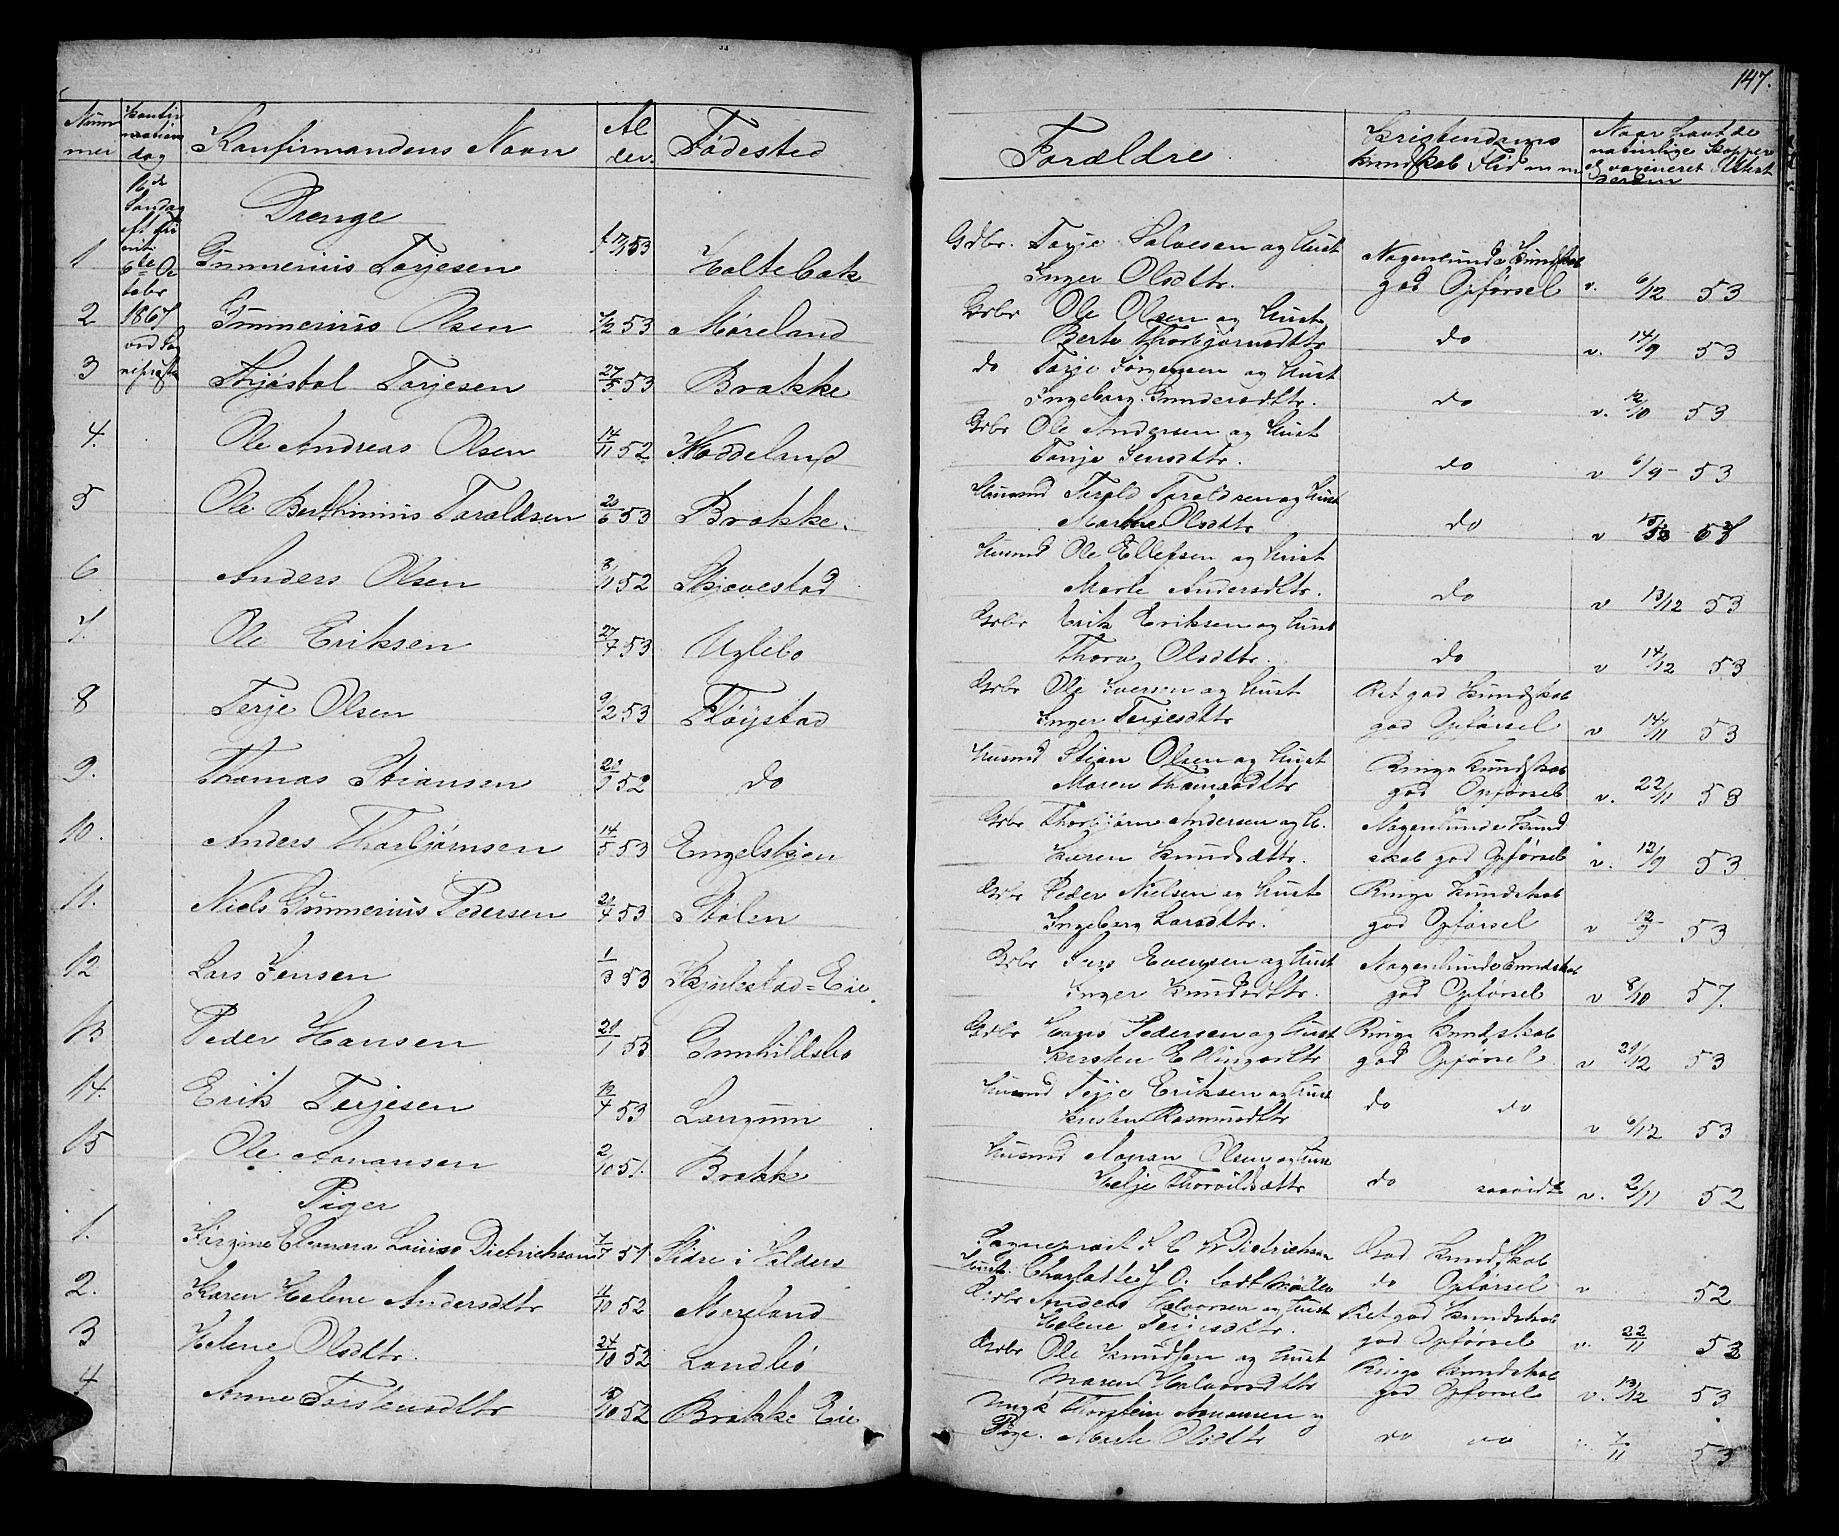 147.
Num mer
Konfir mations dag
Konfirmandens Navn
Al der
Fødested
Forældre.
Kristendoms kundskab Flid m m
Naar havt de naturlige Kopper el. vacineret
16de Søndag eft Tri nit. 6te Oc tober 1867
Drenge
1 Gunnerius Torjesen 53 Holtebæk
Gdbr. Torje Salvesen og Hust
Inger Olsdtr.
Nogenlunde Kundskab god Opførsel v. 6/12 53
2 Gunnerius Olsen 1/2 53 Møreland
Gdbr Ole Olsen og Hust
Berte Thorbjørnsdtr do v. 14/9 53
3 Torjesen 27/5 53 Brække
do Torje Jørgensen og Hust
Ingeborg Gundersdtr. do v. 12/10 53
4. Ole Andreas Olsen 14/11 52 Noddeland
Gdbr Ole Andersen og Hust
Tonje Jensdtr. do v 6/9 53
5 Ole Berthinius Taraldsen 20/6 53 Brække.
Husmd Tarald Taraldsen og Hust
Marthe Olsdtr do v
6 Anders Olsen 3/11 52 Skjævestad
Husmd Ole Ellefsen og Hust
Marte Andersdtr. do v 13/12 53
7. Ole Eriksen 27/4 53 Uglebo
Gdbr Erik Eriksen og Hust
Thora Olsdtr. do v 14/12 53
8 Terje Olsen 9/2 53 Fløystad
Gdbr Ole Iversen og Hust
Inger Terjesdtr
Ret god Kundskab god Opførsel v 14/11 53
9. Thomas Stiansen 52 do
Husmd Stian Olsen og Hust
Maren Thomasdtr
Ringe Kundskab god Opførsel v. 22/11 53
10. Anders Thorbjørnsen 14/5 53 Engelskjøn
Gdbr Thorbjørn Andersen og H.
Karen Knudsdtr.
Nogenlunde Kund skab god Opførsel v. 12/9 53
11. Niels Gunnerius Pedersen 53 Stølen
Gdbr Peder Nielsen og Hust
Ingeborg Larsdtr.
Ringe Kundskab god Opførsel v 12/9 53
12 Lars Jensen 53 Skjulestad=Eie
Gdbr Jens Evensen og Hust
Inger Knudsdtr.
Nogenlunde Kundskab god Opførsel v 8/10 57.
13 Peder Hansen 53 Gunhildsbo
Gdbr Hans Pedersen og Hust
Kirsten Ellingsdtr
Ringe Kundskab god Opførsel. v 53
14. Erik Terjesen 12/4 53 Langum
Husmd Terje Eriksen og Hust
Kirsten Rasmusdtr do do v 6/12 53
15 Ole Aanansen 2/10 51. Brække
Husmd Aanan Olsen og Hust
Helje do v. 2/11 52
Piger
1. Jørgine Eleonora Louise Dietrichson 51 Slidre i Valders
Sogneprest Dietrichson
Hust. Charlotte
God Kundskab do Opførsel v 52
2. Karen Helene Andersdtr 4/10 52 Møreland
Gdbr Anders Halvorsen og Hust
Helene Terjesdtr.
Ret god Kundskab god Opførsel v. 22/11 52
3 Helene Olsdtr. 24/10 52 Landbø
Gdbr Ole Knudsen og Hust
Maren Halvorsdtr
Ringe Kundskab god Opførsel v. 13/12 53
4 Anne Torstensdtr 52 Brække Eie
Ungk Thorstein Aanansen og
Pige. Marte Olsdtr do do 53